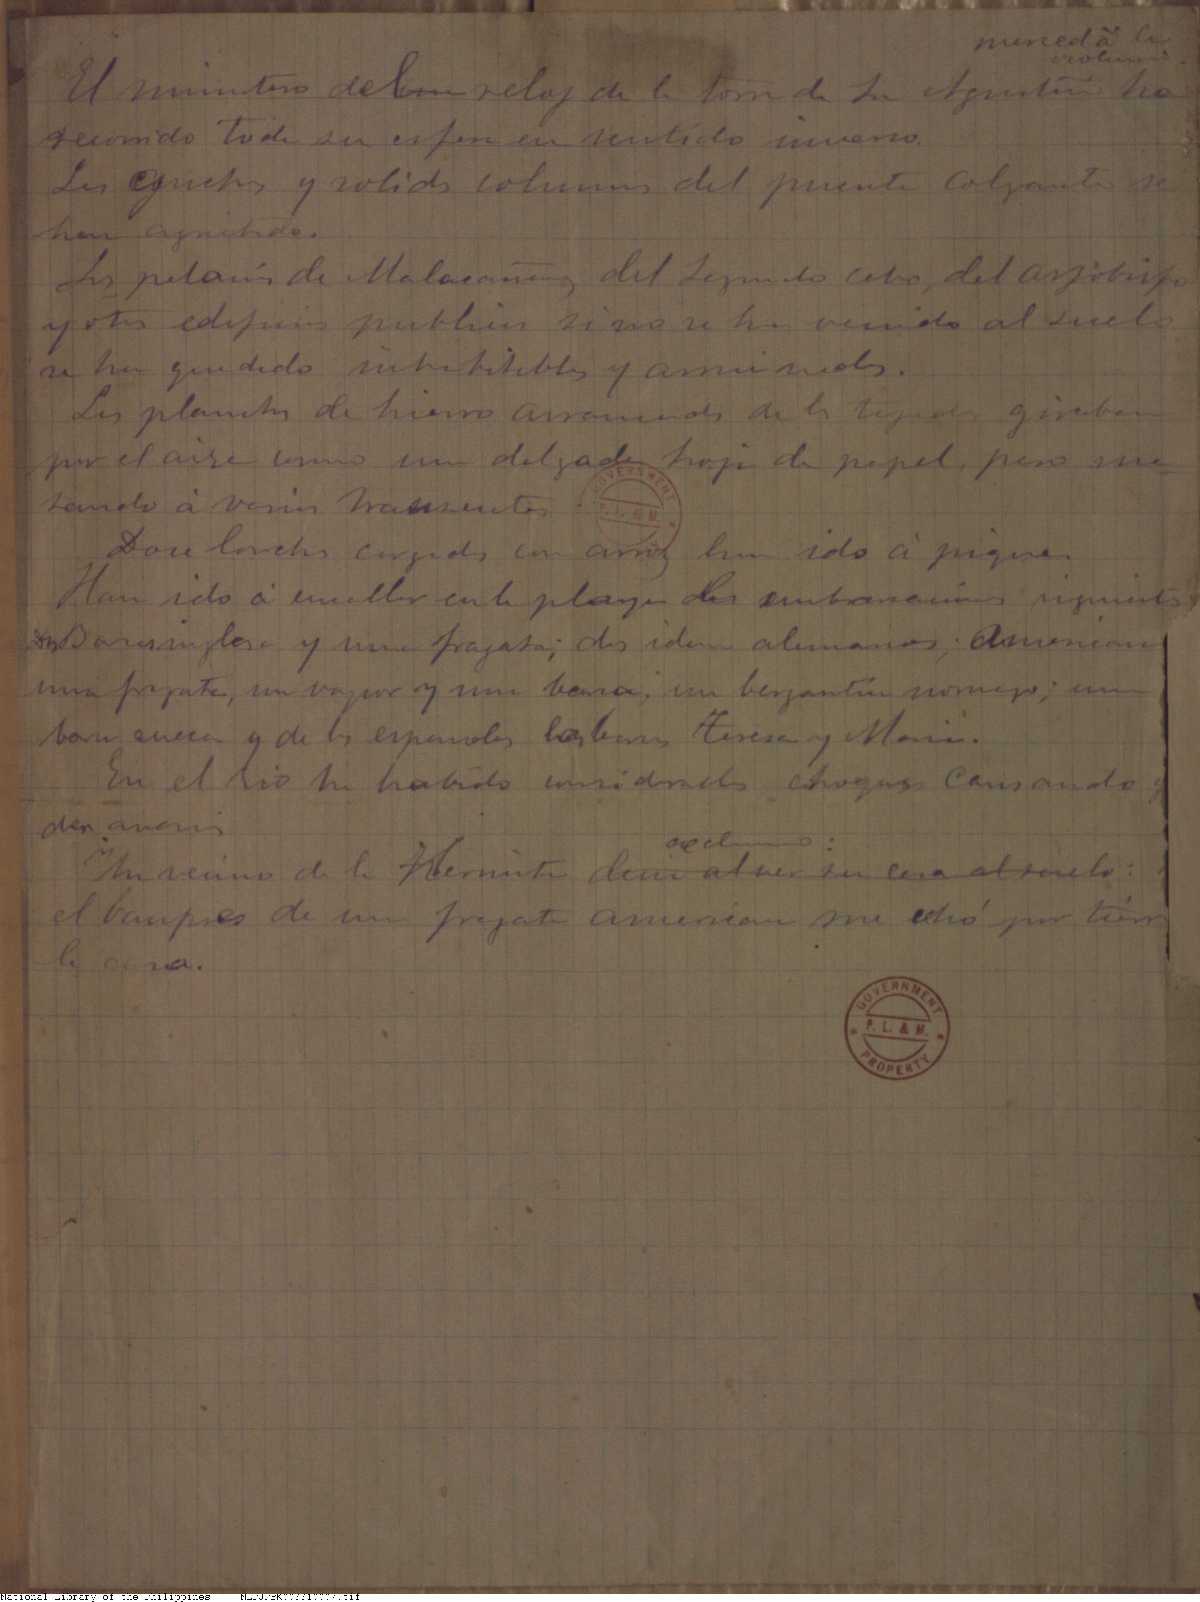 merced á la
violencia.
El minutero del reloj de la torre de Sn Agustin ha
recorrido toda su esfera en sentido inverso.
Las y solidas columnas del puente colgante se
han agrietado.
Los palacios de Malacañang, del Segundo cabo, del arzobispo
y otros edificios publicos si no se han venido al suelo
se han quedado inhabitables y arruinados.
Las planchas de hierro arrancadas de los tejados giraban
por el aire como una delgada hoja de papel, pero ma-
tando á varios transeuntes
Doce lorchas cargadas con arroz han ido á pique.
Han ido á encallar en la playa las embarcaciones siguientes
Barca inglesa y una fragata; dos idem alemanas; Americana
una fragata, un vapor y una barca; un bergantin noruego; una
barca sueca y de los españoles las barcas Teresa y Maria.
En el rio ha habido considerables choques causando
averias
exclamó:
Un vecino de la Hermita decia al ver su casa al suelo:
el baupres de una fragata americana me echó por tierra
la casa.
GOVERNMENT
P. L. & M.
GOVERNMENT
P. L. & M.
PROPERTY
National Library of the Philippines